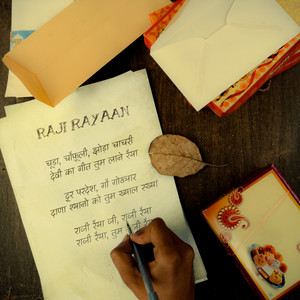 RAJI RAYAAN
चूड़ा, चौंफूली, झोड़ा चाचरी
देवी का गीत तुम लाने रैया
दूर परदेश, गाँ गोठ्यार
दाणा श्याणो को तुम ख्याल रख्या
राजी रैया जी, राजी रैया
राजी रैया, तुम